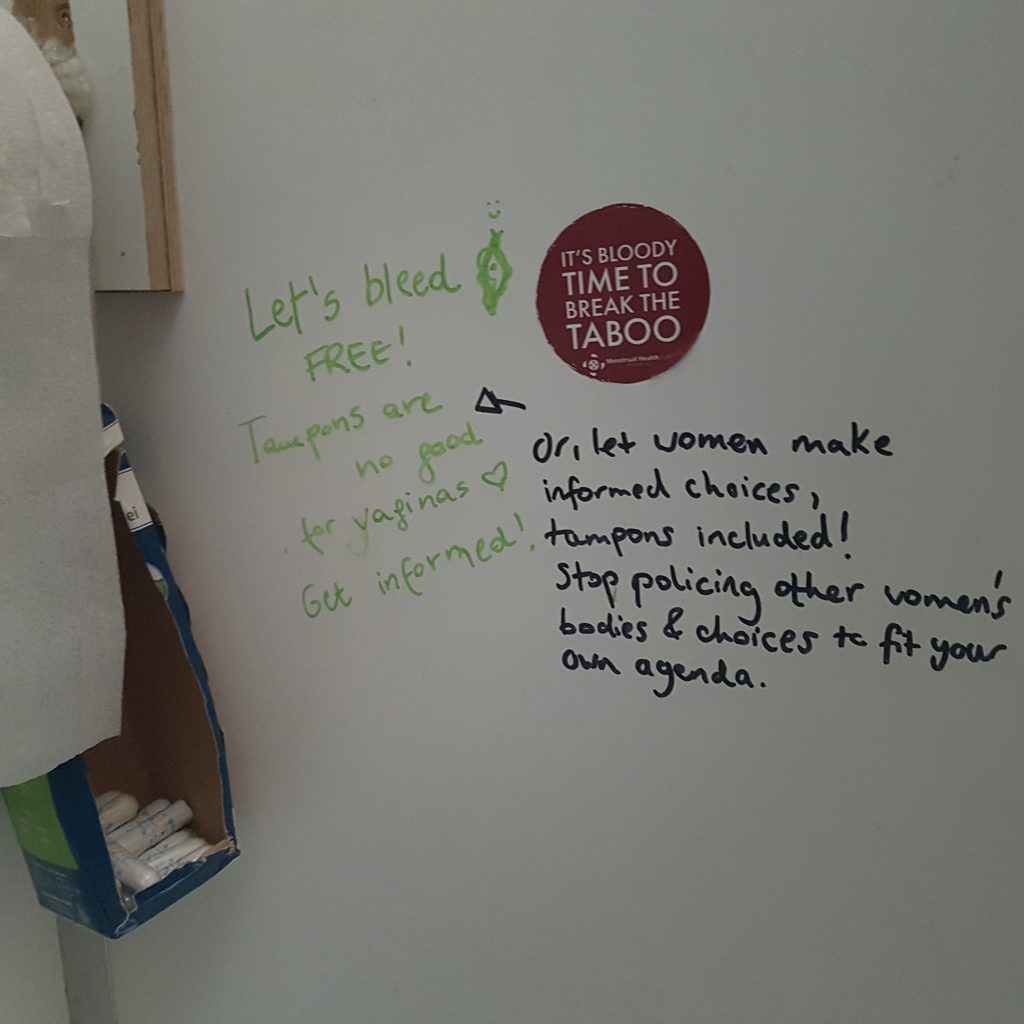 Let's bleed
FREE!
Tampons are
no good
for vaginas ♡
Get informed!
IT'S BLOODY
TIME TO
BREAK THE
TABOO
Menstrual Health
Or, let women make
informed choices,
tampons included!
Stop policing other women's
bodies & choices to fit your
own agenda.
ei